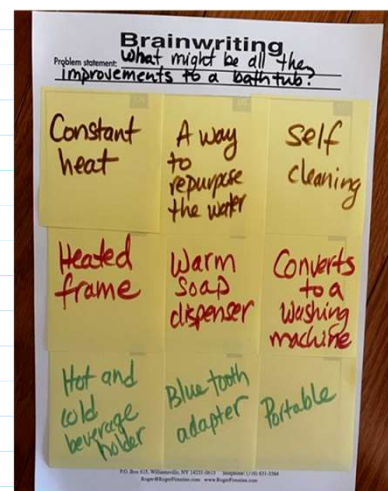 Brainwriting
Problem statement: What might be all the
improvements to a bathtub?
Constant
heat
A way
to
repurpose
the water
Self
cleaning
Heated
frame
Warm
Soap
dispenser
Converts
to a
Washing
machine
Hot and
cold
beverage
holder
Bluetooth
adapter
Portable
P.O. Box 615, Williamsville, NY 14231-0615